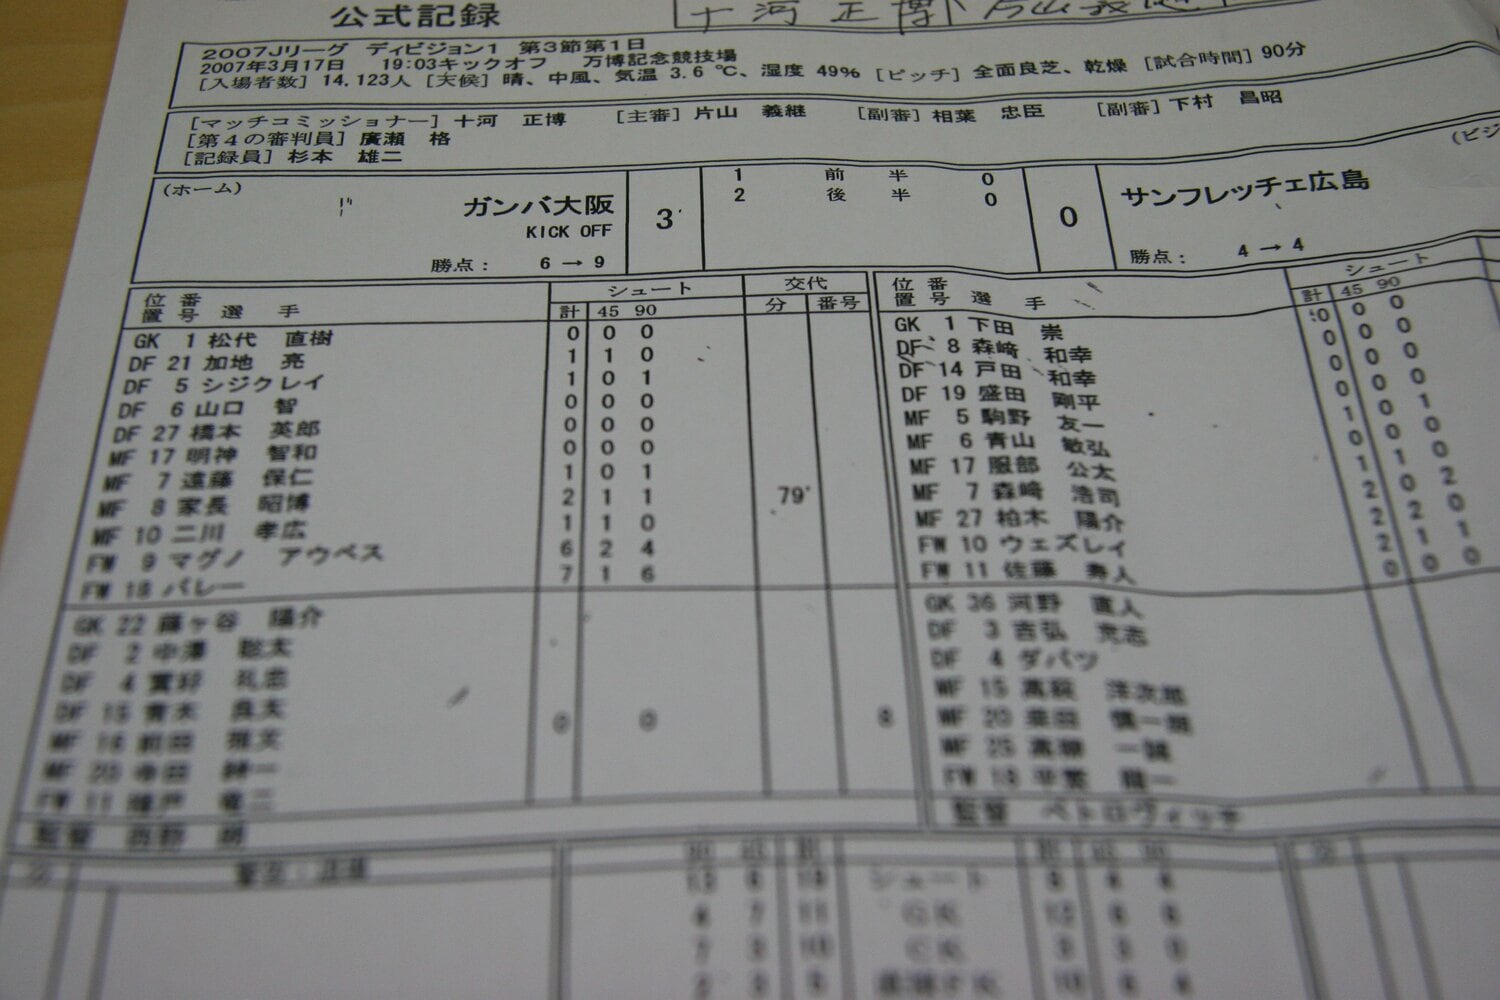 公式記録
十河 正博 片山義継
2007Jリーグ ディビジョン1 第3節第1日
2007年3月17日 19:03キックオフ 万博記念競技場
[入場者数] 14,123人 [天候] 晴、中風、気温 3.6 ℃、湿度 49% [ピッチ] 全面良芝、乾燥 [試合時間] 90分
[マッチコミッショナー] 十河 正博 [主審] 片山 義継 [副審] 相葉 忠臣 [副審] 下村 昌昭
[第4の審判員] 廣瀬 格
[記録員] 杉本 雄二
(ホーム) 1 前半 0 (ビジ
ガンバ大阪 3 2 後半 0 0 サンフレッチェ広島
KICK OFF
勝点: 6 → 9 勝点: 4 → 4
位置 番号 選手 シュート 交代 位置 番号 選手 シュート
計 45 90 分 番号 計 45 90
GK 1 松代 直樹 0 0 0 GK 1 下田 崇 0 0 0
DF 21 加地 亮 1 1 0 DF 8 森﨑 和幸 0 0 0
DF 5 シジクレイ 1 0 1 DF 14 戸田 和幸 0 0 0
DF 6 山口 智 0 0 0 DF 19 盛田 剛平 0 0 0
DF 27 橋本 英郎 0 0 0 MF 5 駒野 友一 1 0 1
MF 17 明神 智和 0 0 0 MF 6 青山 敏弘 0 0 0
MF 7 遠藤 保仁 1 0 1 MF 17 服部 公太 1 1 0
MF 8 家長 昭博 2 1 1 79' MF 7 森﨑 浩司 2 0 2
MF 10 二川 孝広 1 1 0 MF 27 柏木 陽介 2 2 0
FW 9 マグノ アウベス 6 2 4 FW 10 ウェズレイ 2 1 1
FW 18 バレー 7 1 6 FW 11 佐藤 寿人 0 0 0
GK 22 藤ヶ谷 陽介 GK 36 河野 直人
DF 2 中澤 聡太 DF 3 吉弘 充志
DF 4 實好 礼忠 DF 4 ダバツ
DF 15 青木 良太 0 0 8 MF 15 高萩 洋次郎
MF 16 前田 雅文 MF 20 桑田 慎一朗
MF 20 寺田 紳一 MF 25 高柳 一誠
FW 11 播戸 竜二 FW 18 平繁 龍一
監督 西野 朗 監督 ペトロヴィッチ
警告・退場
シュート
GK
CK